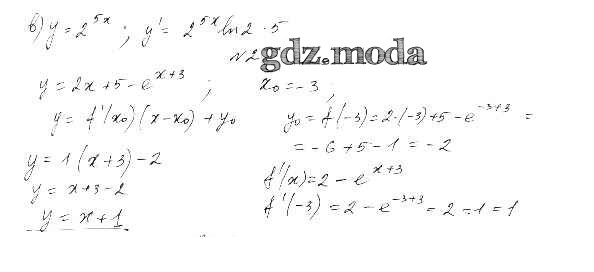 в) y = 2^{5x} ; y' = 2^{5x} ln 2 · 5
N2
gdz.moda
y = 2x + 5 - e^{x+3} ; x₀ = -3 ;
y = f'(x₀)(x - x₀) + y₀
y₀ = f(-3) = 2·(-3) + 5 - e^{-3+3} =
= -6 + 5 - 1 = -2
y = 1(x + 3) - 2
f'(x) = 2 - e^{x+3}
y = x + 3 - 2
f'(-3) = 2 - e^{-3+3} = 2 - 1 = 1
y = x + 1